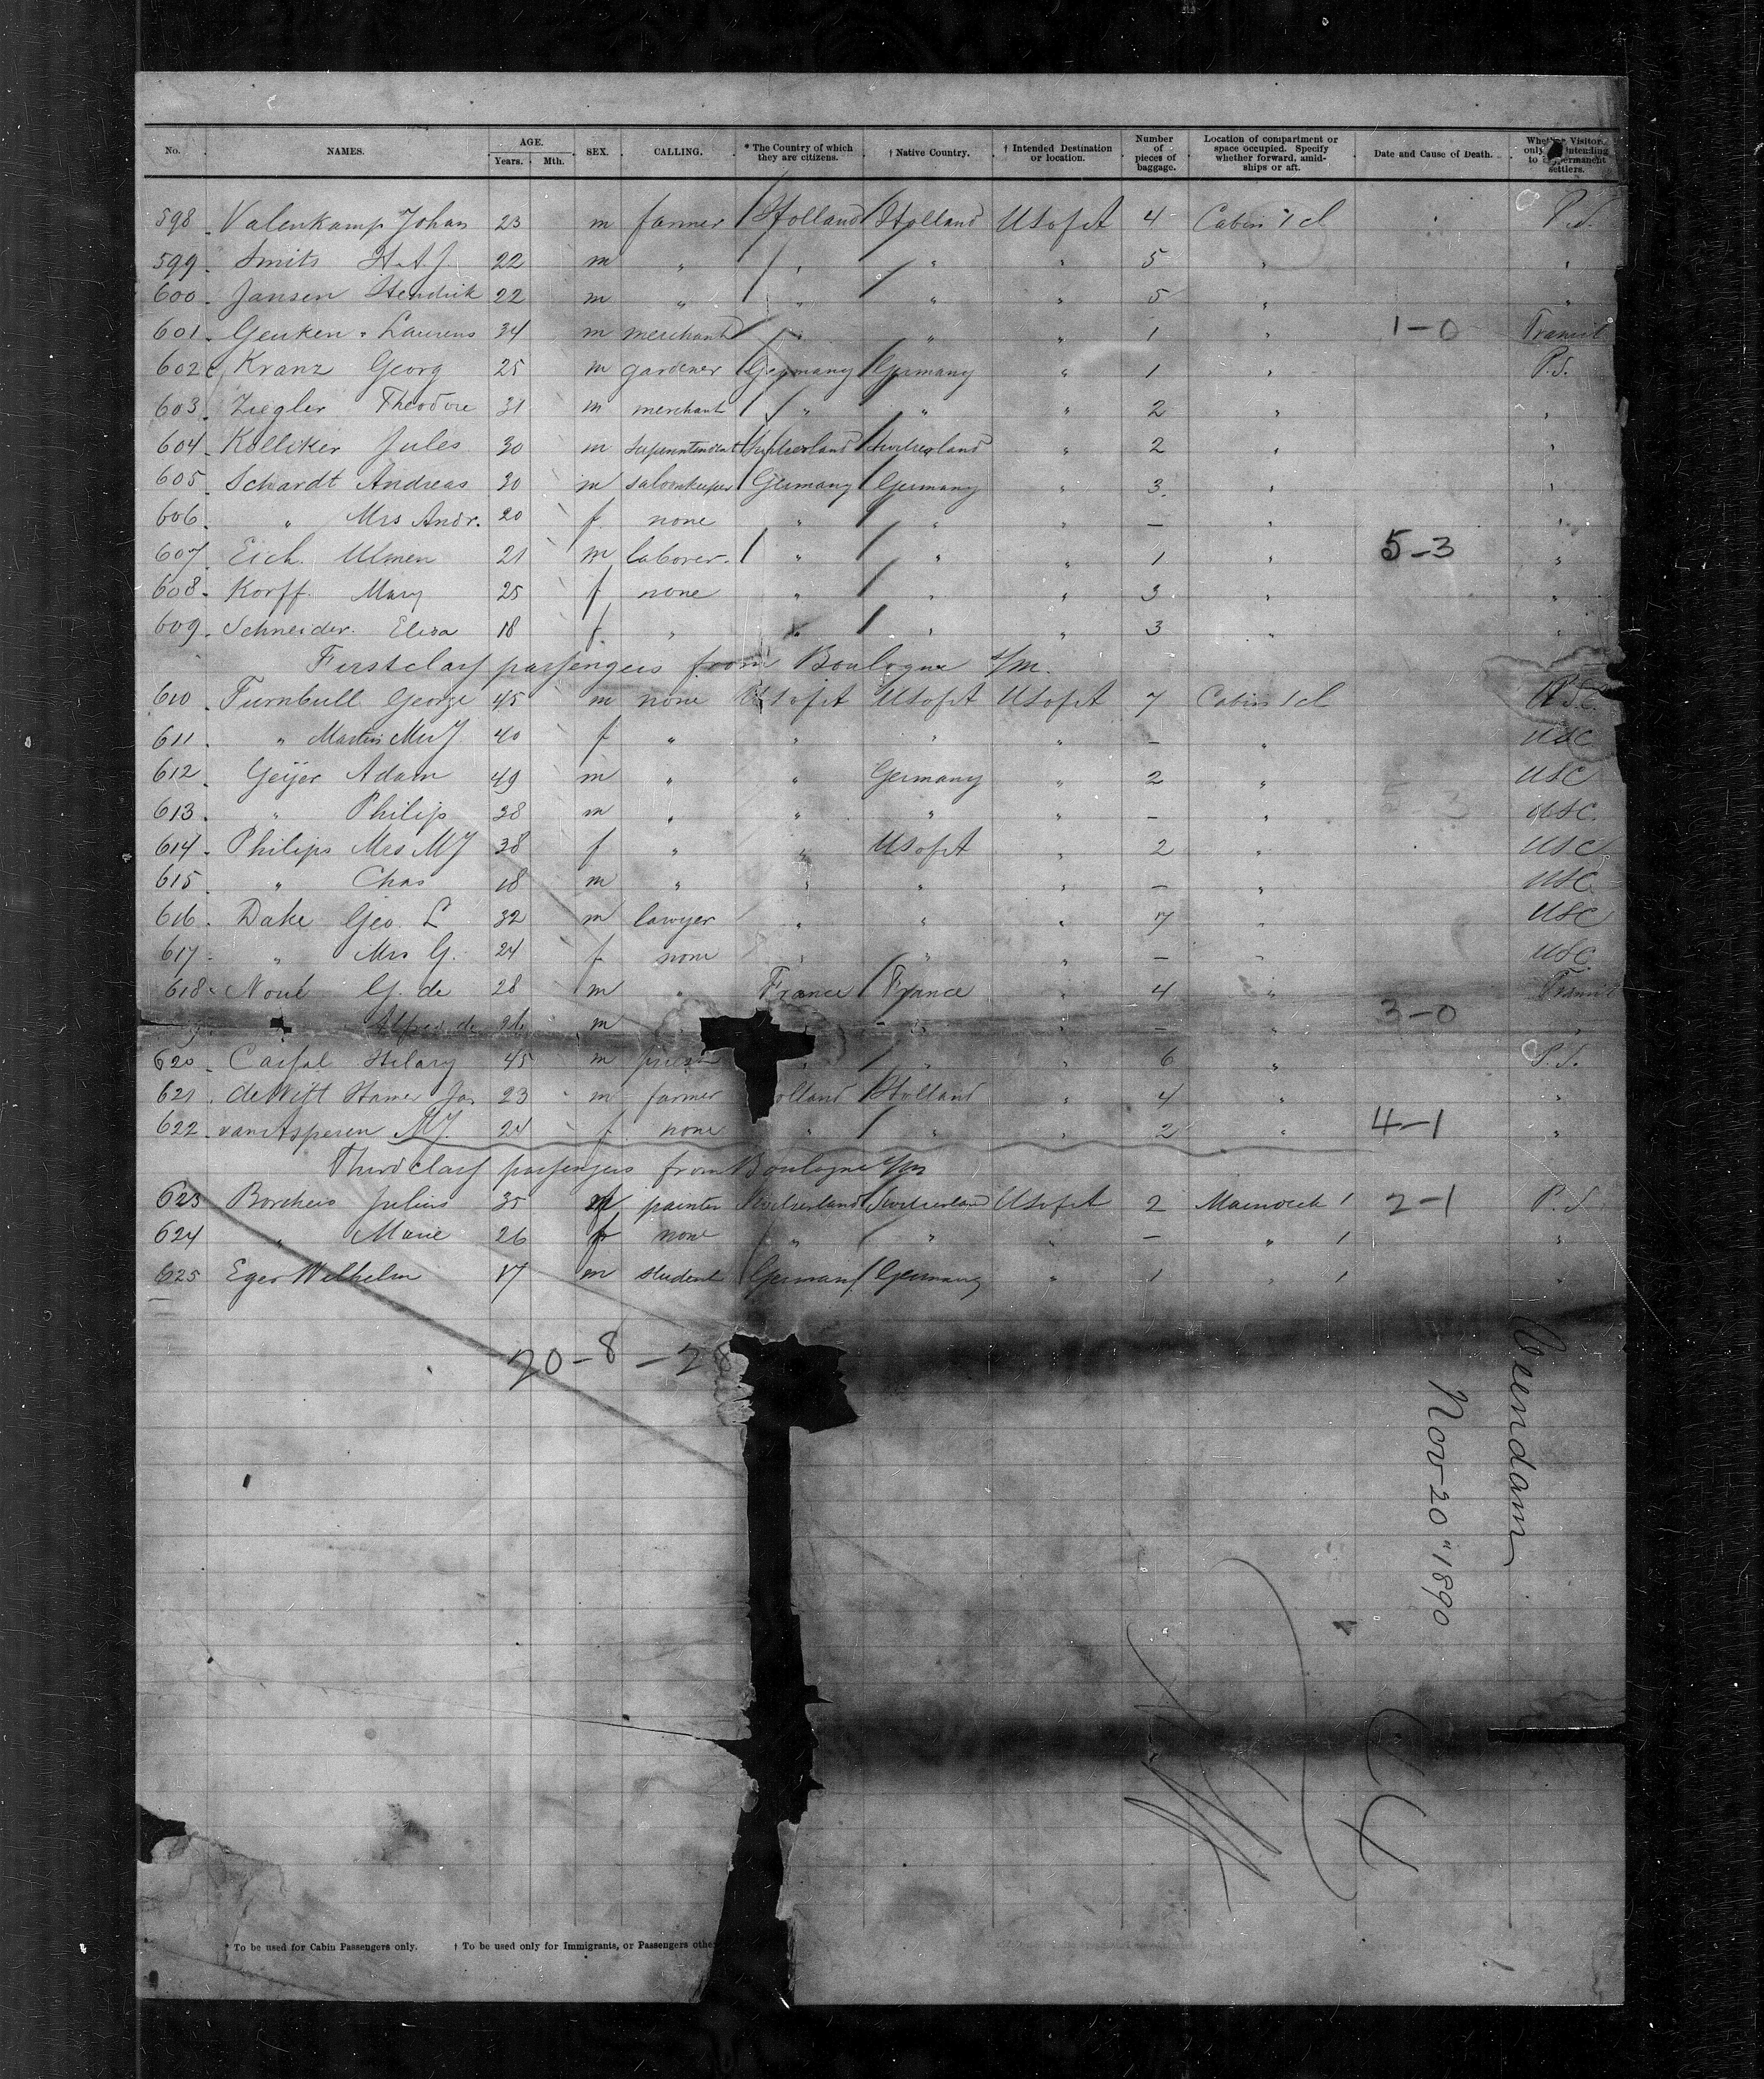 No. NAMES. AGE. Years. Mth. SEX. CALLING. * The Country of which they are citizens. † Native Country. † Intended Destination or location. Number of pieces of baggage. Location of compartment or space occupied. Specify whether forward, amid-ships or aft. Date and Cause of Death. Whether Visitor only intending to permanent settlers.
598 Valenkamp Johan 23 m farmer Holland Holland USofA 4 Cabin 1 cl P.S.
599 Smits H.A.J. 22 m " " " " 5 " "
600 Jansen Hendrik 22 m " " " " 5 " "
601 Geuken Laurens 34 m merchant " " " 1 " 1-0 Transit
602 Kranz Georg 25 m gardener Germany Germany " 1 " P.S.
603 Ziegler Theodore 31 m merchant " " " 2 " "
604 Kolliker Jules 30 m Superintendent Switserland Switserland " 2 " "
605 Schardt Andreas 30 m saloonkeeper Germany Germany " 3 " "
606 " Mrs Andr. 20 f none " " " — " "
607 Eich. Ulmen 21 m laborer " " " 1 " 5-3 "
608 Korff Mary 25 f none " " " 3 " "
609 Schneider Elisa 18 f " " " " 3 " "
First class passengers from Boulogne s/m.
610 Turnbull George 45 m none USofA USofA USofA 7 Cabin 1 cl
611 " Mrs M J 40 f " " " " — " USC
612 Geijer Adam 49 m " " Germany " 2 " USC
613 " Philip 38 m " " " " — " 5-3 USC
614 Philips Mrs MJ 38 f " " USofA " 2 " USC
615 " Chas 18 m " " " " — " USC
616 Dake Geo. L 32 m lawyer " " " 7 " USC
617 " Mrs G. 24 f none " " " — " USC
618 G. de 28 m " France France " 4 " Transit
" Alfred de 26 m " " — " 3-0 "
620 Hilary 45 m priest " " 6 " P.S.
621 de Witt Hamer Jo. 23 m farmer olland Holland " 4 " "
622 van Asperen MJ. 24 f none " " " 2 " 4-1 "
Third class passengers from Boulogne s/m
623 Borchers Julius 35 m painter Switserland Switserland USofA 2 1 2-1 P.S.
624 " Marie 26 f none " " " — " 1 "
625 Eger Wilhelm 17 m student Germany Germany " 1 " 1 "
20-8-28
Veendam
Nov-20"1890
* To be used for Cabin Passengers only. † To be used only for Immigrants, or Passengers othe